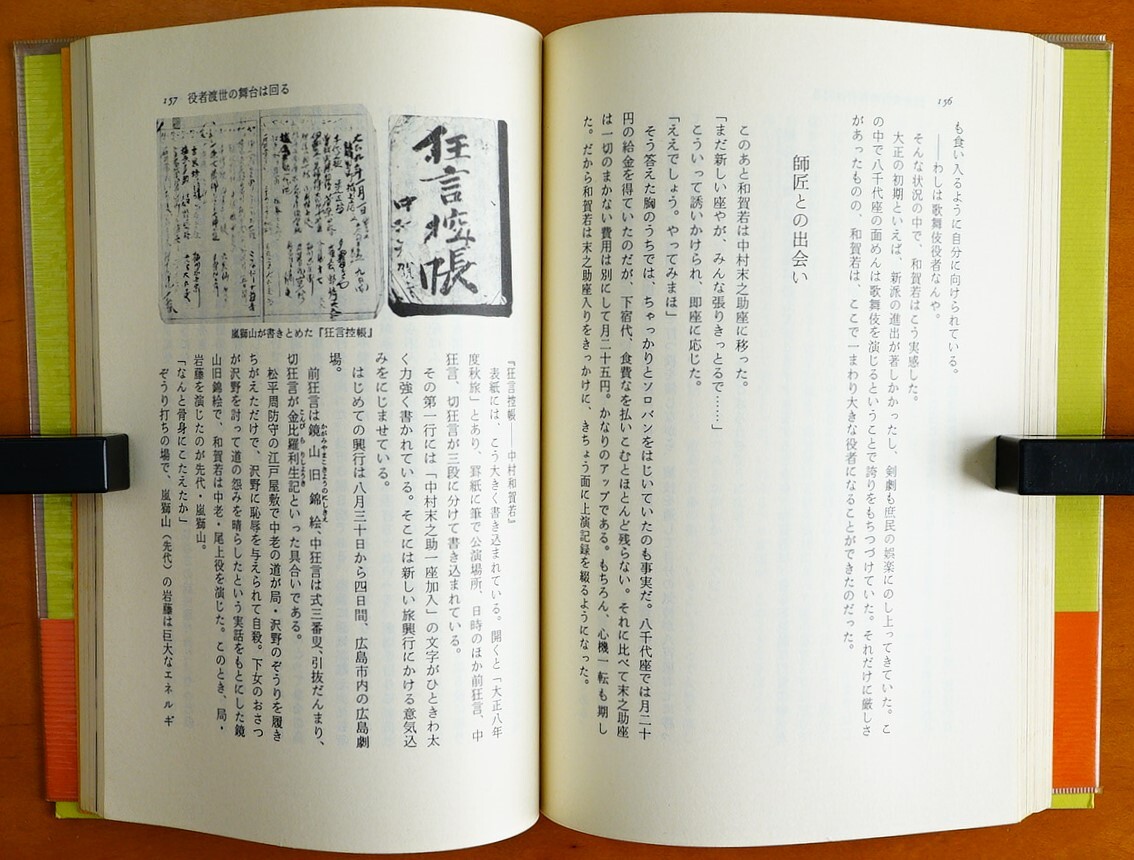 156
も食い入るように自分に向けられている。
――わしは歌舞伎役者なんや。
そんな状況の中で、和賀若はこう実感した。
大正の初期といえば、新派の進出が著しかったし、剣劇も庶民の娯楽にのし上ってきていた。こ
の中で八千代座の面めんは歌舞伎を演じるということで誇りをもちつづけていた。それだけに厳しさ
があったものの、和賀若は、ここで一まわり大きな役者になることができたのだった。
師匠との出会い
このあと和賀若は中村末之助座に移った。
「まだ新しい座やが、みんな張りきっとるで……」
こういって誘いかけられ、即座に応じた。
「ええでしょう。やってみまほ」
そう答えた胸のうちでは、ちゃっかりとソロバンをはじいていたのも事実だ。八千代座では月二十
円の給金を得ていたのだが、下宿代、食費なを払いこむとほとんど残らない。それに比べて末之助座
は一切のまかない費用は別にして月二十五円。かなりのアップである。もちろん、心機一転も期し
た。だから和賀若は末之助座入りをきっかけに、きちょう面に上演記録を綴るようになった。
157 役者渡世の舞台は回る
狂言控帳
嵐獅山が書きとめた『狂言控帳』
『狂言控帳――中村和賀若』
表紙には、こう大きく書き込まれている。開くと「大正八年
度秋旅」とあり、罫紙に筆で公演場所、日時のほか前狂言、中
狂言、切狂言が三段に分けて書き込まれている。
その第一行には「中村末之助一座加入」の文字がひときわ太
く力強く書かれている。そこには新しい旅興行にかける意気込
みをにじませている。
はじめての興行は八月三十日から四日間、広島市内の広島劇
場。
前狂言は鏡山旧錦絵、中狂言は式三番叟、引抜だんまり、
切狂言が金比羅利生記といった具合いである。
松平周防守の江戸屋敷で中老の道が局・沢野のぞうりを履き
ちがえただけで、沢野に恥辱を与えられて自殺。下女のおさつ
が沢野を討って道の怨みを晴らしたという実話をもとにした鏡
山旧錦絵で、和賀若は中老・尾上役を演じた。このとき、局・
岩藤を演じたのが先代・嵐獅山。
「なんと骨身にこたえたか」
ぞうり打ちの場で、嵐獅山（先代）の岩藤は巨大なエネルギ